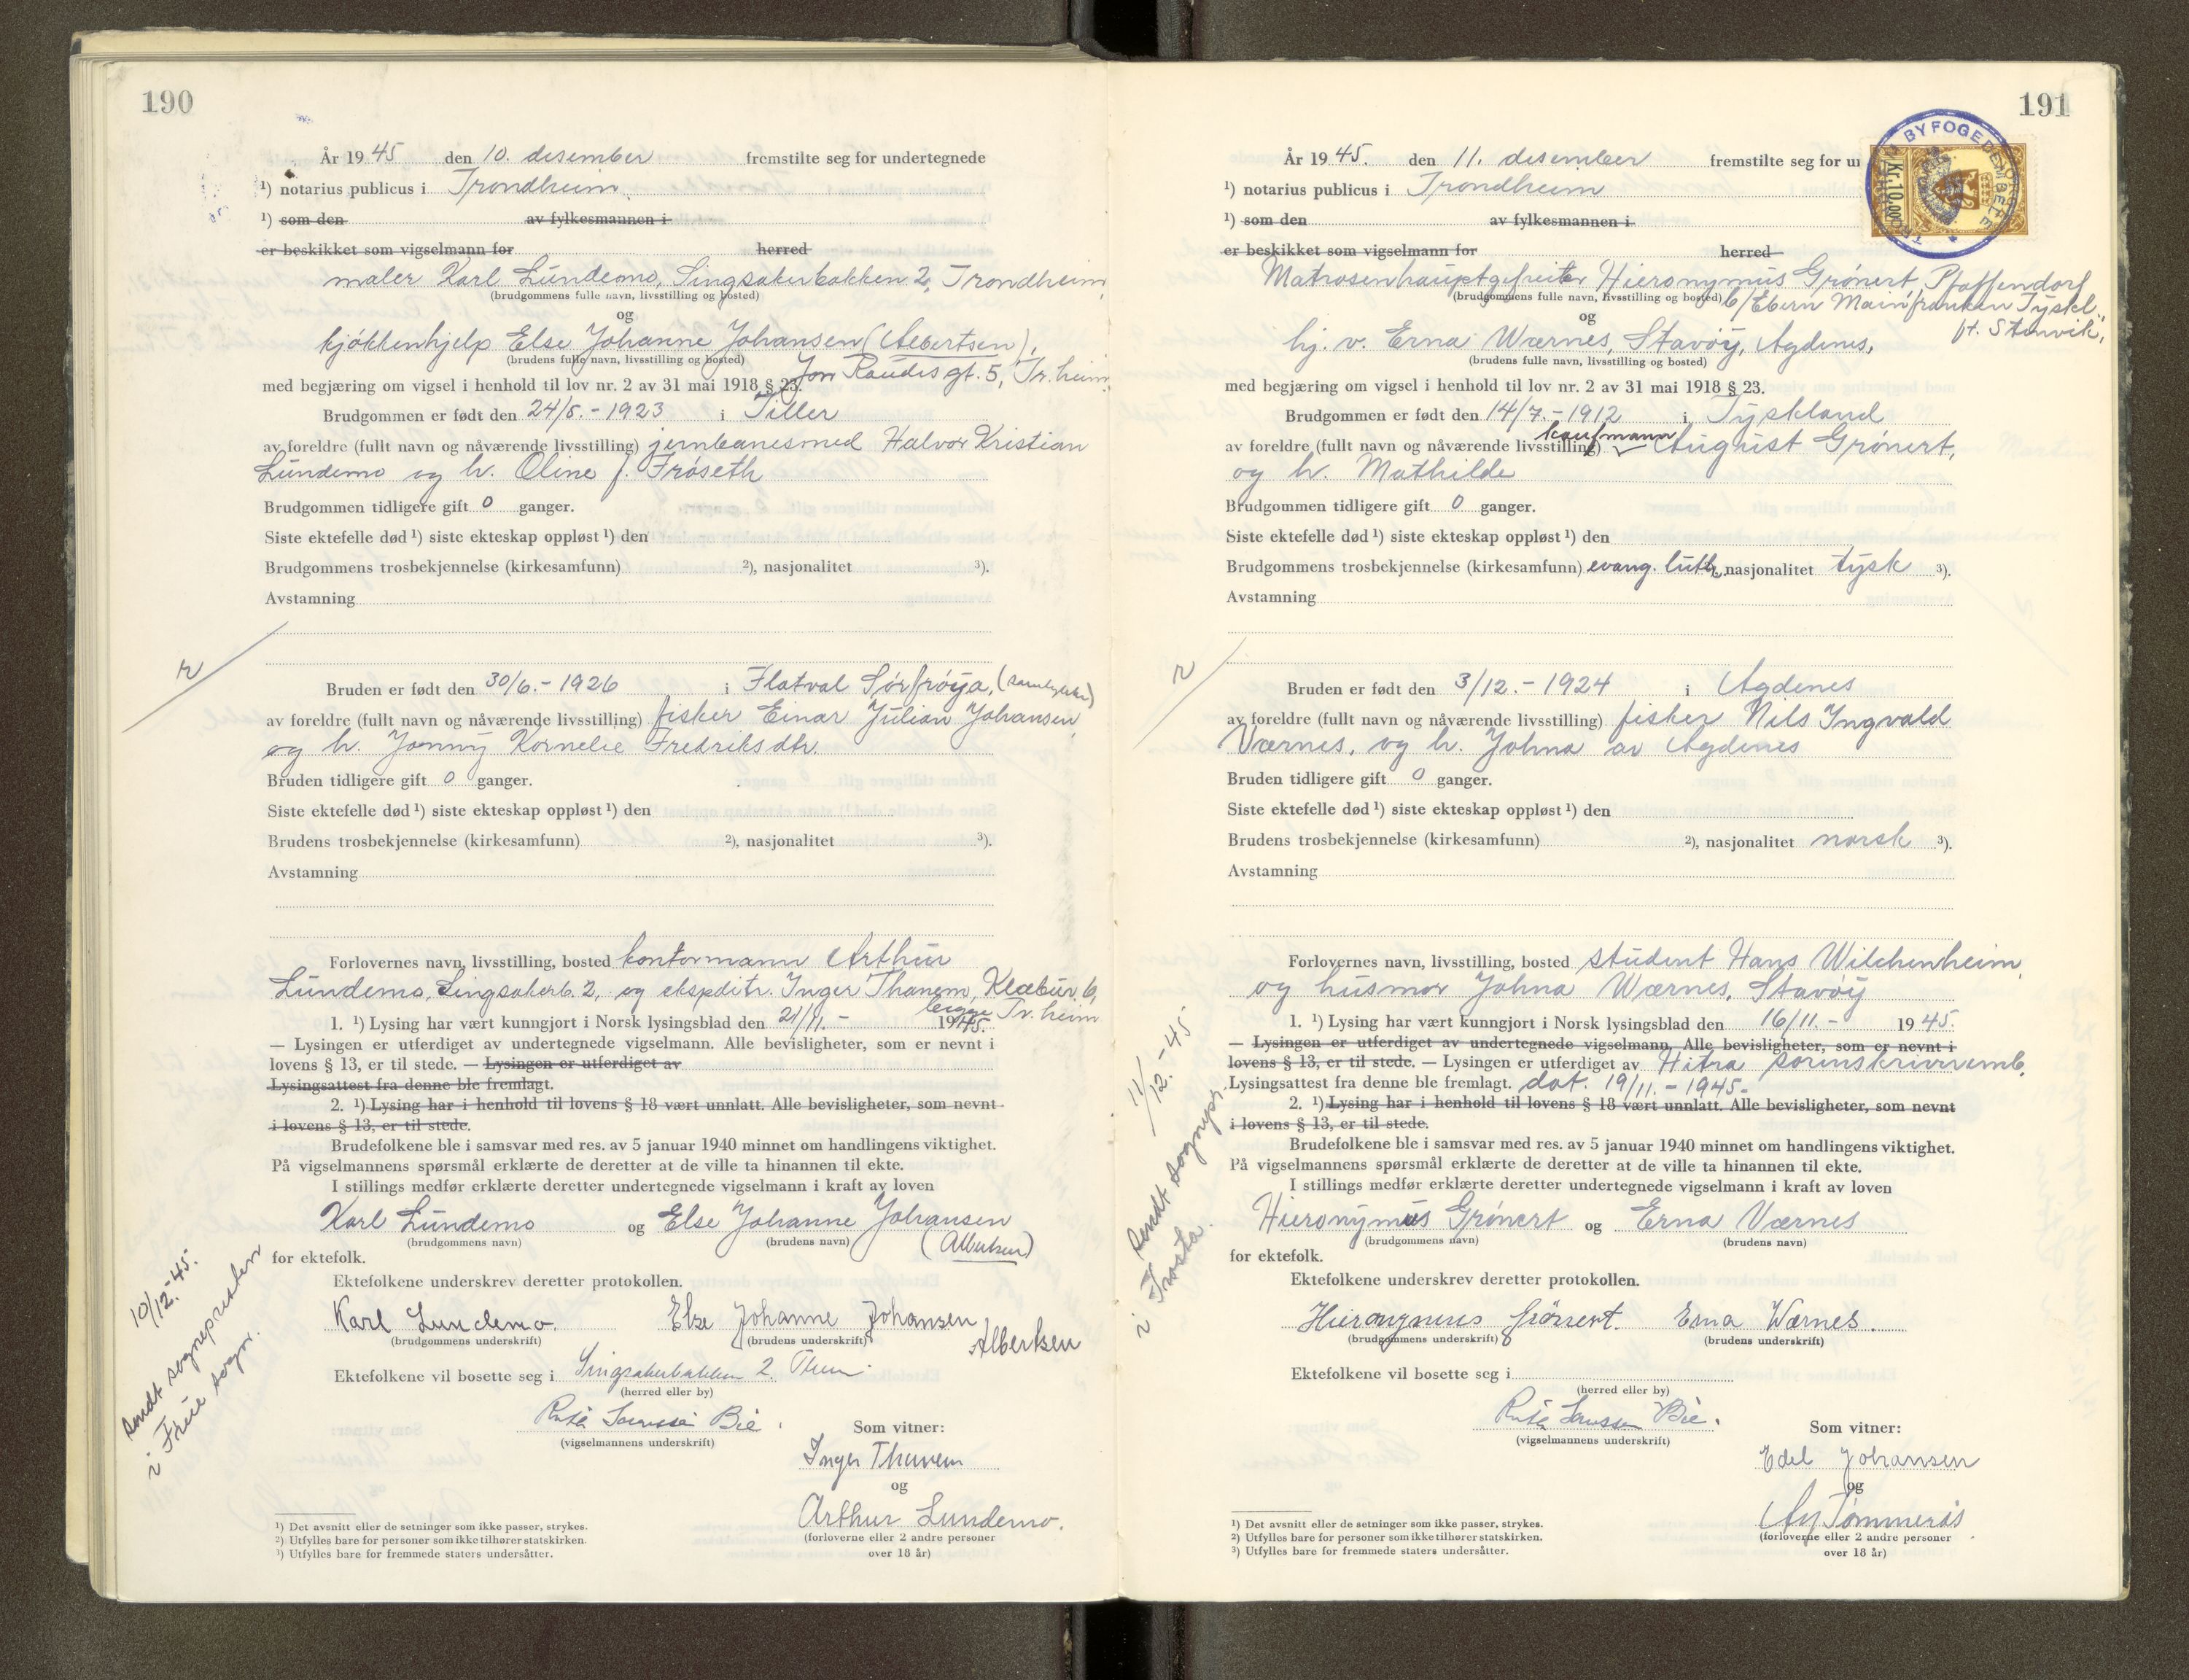 190
År 1945 den 10. desember fremstilte seg for undertegnede
¹) notarius publicus i Trondheim
¹) som den av fylkesmannen i
er beskikket som vigselmann for herred
maler Karl Lundemo, Singsakerbakken 2, Trondheim,
(brudgommens fulle navn, livsstilling og bosted)
og
kjøkkenhjelp Else Johanne Johansen (Albertsen),
(brudens fulle navn, livsstilling og bosted)
Jon Raudes gt. 5, Tr.heim,
med begjæring om vigsel i henhold til lov nr. 2 av 31 mai 1918 § 23.
Brudgommen er født den 24/5.-1923 i Tiller
av foreldre (fullt navn og nåværende livsstilling) jernbanesmed Halvor Kristian
Lundemo og h. Oline f. Frøseth
Brudgommen tidligere gift 0 ganger.
Siste ektefelle død ¹) siste ekteskap oppløst ¹) den
Brudgommens trosbekjennelse (kirkesamfunn) ²), nasjonalitet ³).
Avstamning
Bruden er født den 30/6.-1926 i Flatval Sørfrøya,
av foreldre (fullt navn og nåværende livsstilling) fisker Einar Julian Johansen,
og h. Jenny Kornelie Fredriksdtr.
Bruden tidligere gift 0 ganger.
Siste ektefelle død ¹) siste ekteskap oppløst ¹) den
Brudens trosbekjennelse (kirkesamfunn) ²), nasjonalitet ³).
Avstamning
Forlovernes navn, livsstilling, bosted kontormann Arthur
Lundemo, Singsakerb. 2, og ekspeditr. Inger Thanem, Klæbuv. 6,
Tr.heim
1. ¹) Lysing har vært kunngjort i Norsk lysingsblad den 21/11.- 1945.
— Lysingen er utferdiget av undertegnede vigselmann. Alle bevisligheter, som er nevnt i
lovens § 13, er til stede. — Lysingen er utferdiget av
Lysingsattest fra denne ble fremlagt.
2. ¹) Lysing har i henhold til lovens § 18 vært unnlatt. Alle bevisligheter, som nevnt
i lovens § 13, er til stede.
Brudefolkene ble i samsvar med res. av 5 januar 1940 minnet om handlingens viktighet.
På vigselmannens spørsmål erklærte de deretter at de ville ta hinannen til ekte.
I stillings medfør erklærte deretter undertegnede vigselmann i kraft av loven
Karl Lundemo og Else Johanne Johansen
(brudgommens navn) (brudens navn) (Albertsen)
for ektefolk.
Ektefolkene underskrev deretter protokollen.
Karl Lundemo. Else Johanne Johansen
(brudgommens underskrift) (brudens underskrift) Albertsen
Ektefolkene vil bosette seg i Singsakerbakken 2. Thm.
(herred eller by)
(vigselmannens underskrift)
Som vitner:
Inger Thanem
og
Arthur Lundemo.
(forloverne eller 2 andre personer
over 18 år)
¹) Det avsnitt eller de setninger som ikke passer, strykes.
²) Utfylles bare for personer som ikke tilhører statskirken.
³) Utfylles bare for fremmede staters undersåtter.
10/12.-45.
Sendt sognepresten
i sogn.
191
År 1945. den 11. desember fremstilte seg for un
¹) notarius publicus i Trondheim
¹) som den av fylkesmannen i
er beskikket som vigselmann for herred
BYFOGEDEMBETE
Kr. 10.00
Matrosenhauptgefreiter Hieronymus Grønert, Pfaffendorf
(brudgommens fulle navn, livsstilling og bosted)
b/Ebern Mainfranken Tyskl.,
og
hj. v. Erna Wærnes, Stavøy, Agdenes,
(brudens fulle navn, livsstilling og bosted)
med begjæring om vigsel i henhold til lov nr. 2 av 31 mai 1918 § 23.
Brudgommen er født den 14/7.-1912 i Tyskland
av foreldre (fullt navn og nåværende livsstilling) kaufmann August Grønert,
og h. Mathilde
Brudgommen tidligere gift 0 ganger.
Siste ektefelle død ¹) siste ekteskap oppløst ¹) den
Brudgommens trosbekjennelse (kirkesamfunn) evang. luth. ²), nasjonalitet tysk ³).
Avstamning
Bruden er født den 3/12.-1924 i Agdenes
av foreldre (fullt navn og nåværende livsstilling) fisker Nils Ingvald
Værnes, og h. Johna av Agdenes
Bruden tidligere gift 0 ganger.
Siste ektefelle død ¹) siste ekteskap oppløst ¹) den
Brudens trosbekjennelse (kirkesamfunn) ²), nasjonalitet norsk ³).
Avstamning
Forlovernes navn, livsstilling, bosted student Hans Wilchenheim,
og husmor Johna Wærnes, Stavøy
1. ¹) Lysing har vært kunngjort i Norsk lysingsblad den 16/11.- 1945.
— Lysingen er utferdiget av undertegnede vigselmann. Alle bevisligheter, som er nevnt i
lovens § 13, er til stede. — Lysingen er utferdiget av Hitra sorenskriveremb.
Lysingsattest fra denne ble fremlagt. dat. 19/11.-1945-
2. ¹) Lysing har i henhold til lovens § 18 vært unnlatt. Alle bevisligheter, som nevnt
i lovens § 13, er til stede.
Brudefolkene ble i samsvar med res. av 5 januar 1940 minnet om handlingens viktighet.
På vigselmannens spørsmål erklærte de deretter at de ville ta hinannen til ekte.
I stillings medfør erklærte deretter undertegnede vigselmann i kraft av loven
Hieronymus Grønert og Erna Værnes
(brudgommens navn) (brudens navn)
for ektefolk.
Ektefolkene underskrev deretter protokollen.
Hieronymus Grönert. Erna Wærnes.
(brudgommens underskrift) (brudens underskrift)
Ektefolkene vil bosette seg i
(herred eller by)
(vigselmannens underskrift)
Som vitner:
Edel Johansen
og
Tømmerås
(forloverne eller 2 andre personer
over 18 år)
¹) Det avsnitt eller de setninger som ikke passer, strykes.
²) Utfylles bare for personer som ikke tilhører statskirken.
³) Utfylles bare for fremmede staters undersåtter.
11/12.-45.
Sendt sognepr.
i Frosta.